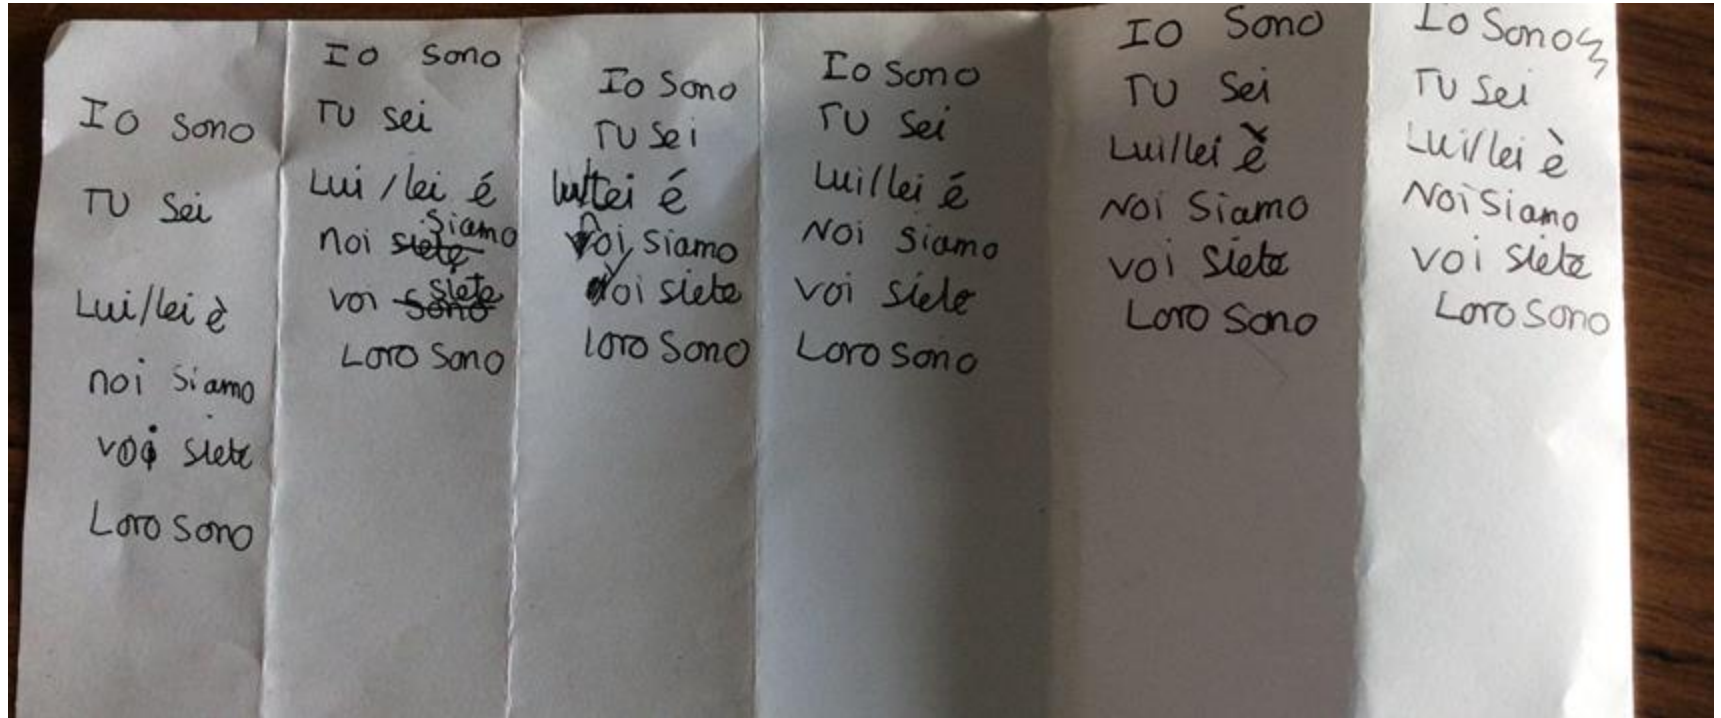 Io sono
Tu sei
Lui/lei è
noi siamo
voi siete
Loro sono
Io sono
Tu sei
Lui/lei é
noi siete siamo
voi sono siete
Loro sono
Io sono
Tu sei
lui/lei é
noi siamo
voi siete
loro sono
Io sono
Tu sei
Lui/lei é
Noi siamo
voi siete
Loro sono
Io sono
Tu sei
Lui/lei è
Noi siamo
voi siete
Loro sono
Io sono
Tu sei
Lui/lei è
Noi siamo
voi siete
Loro sono